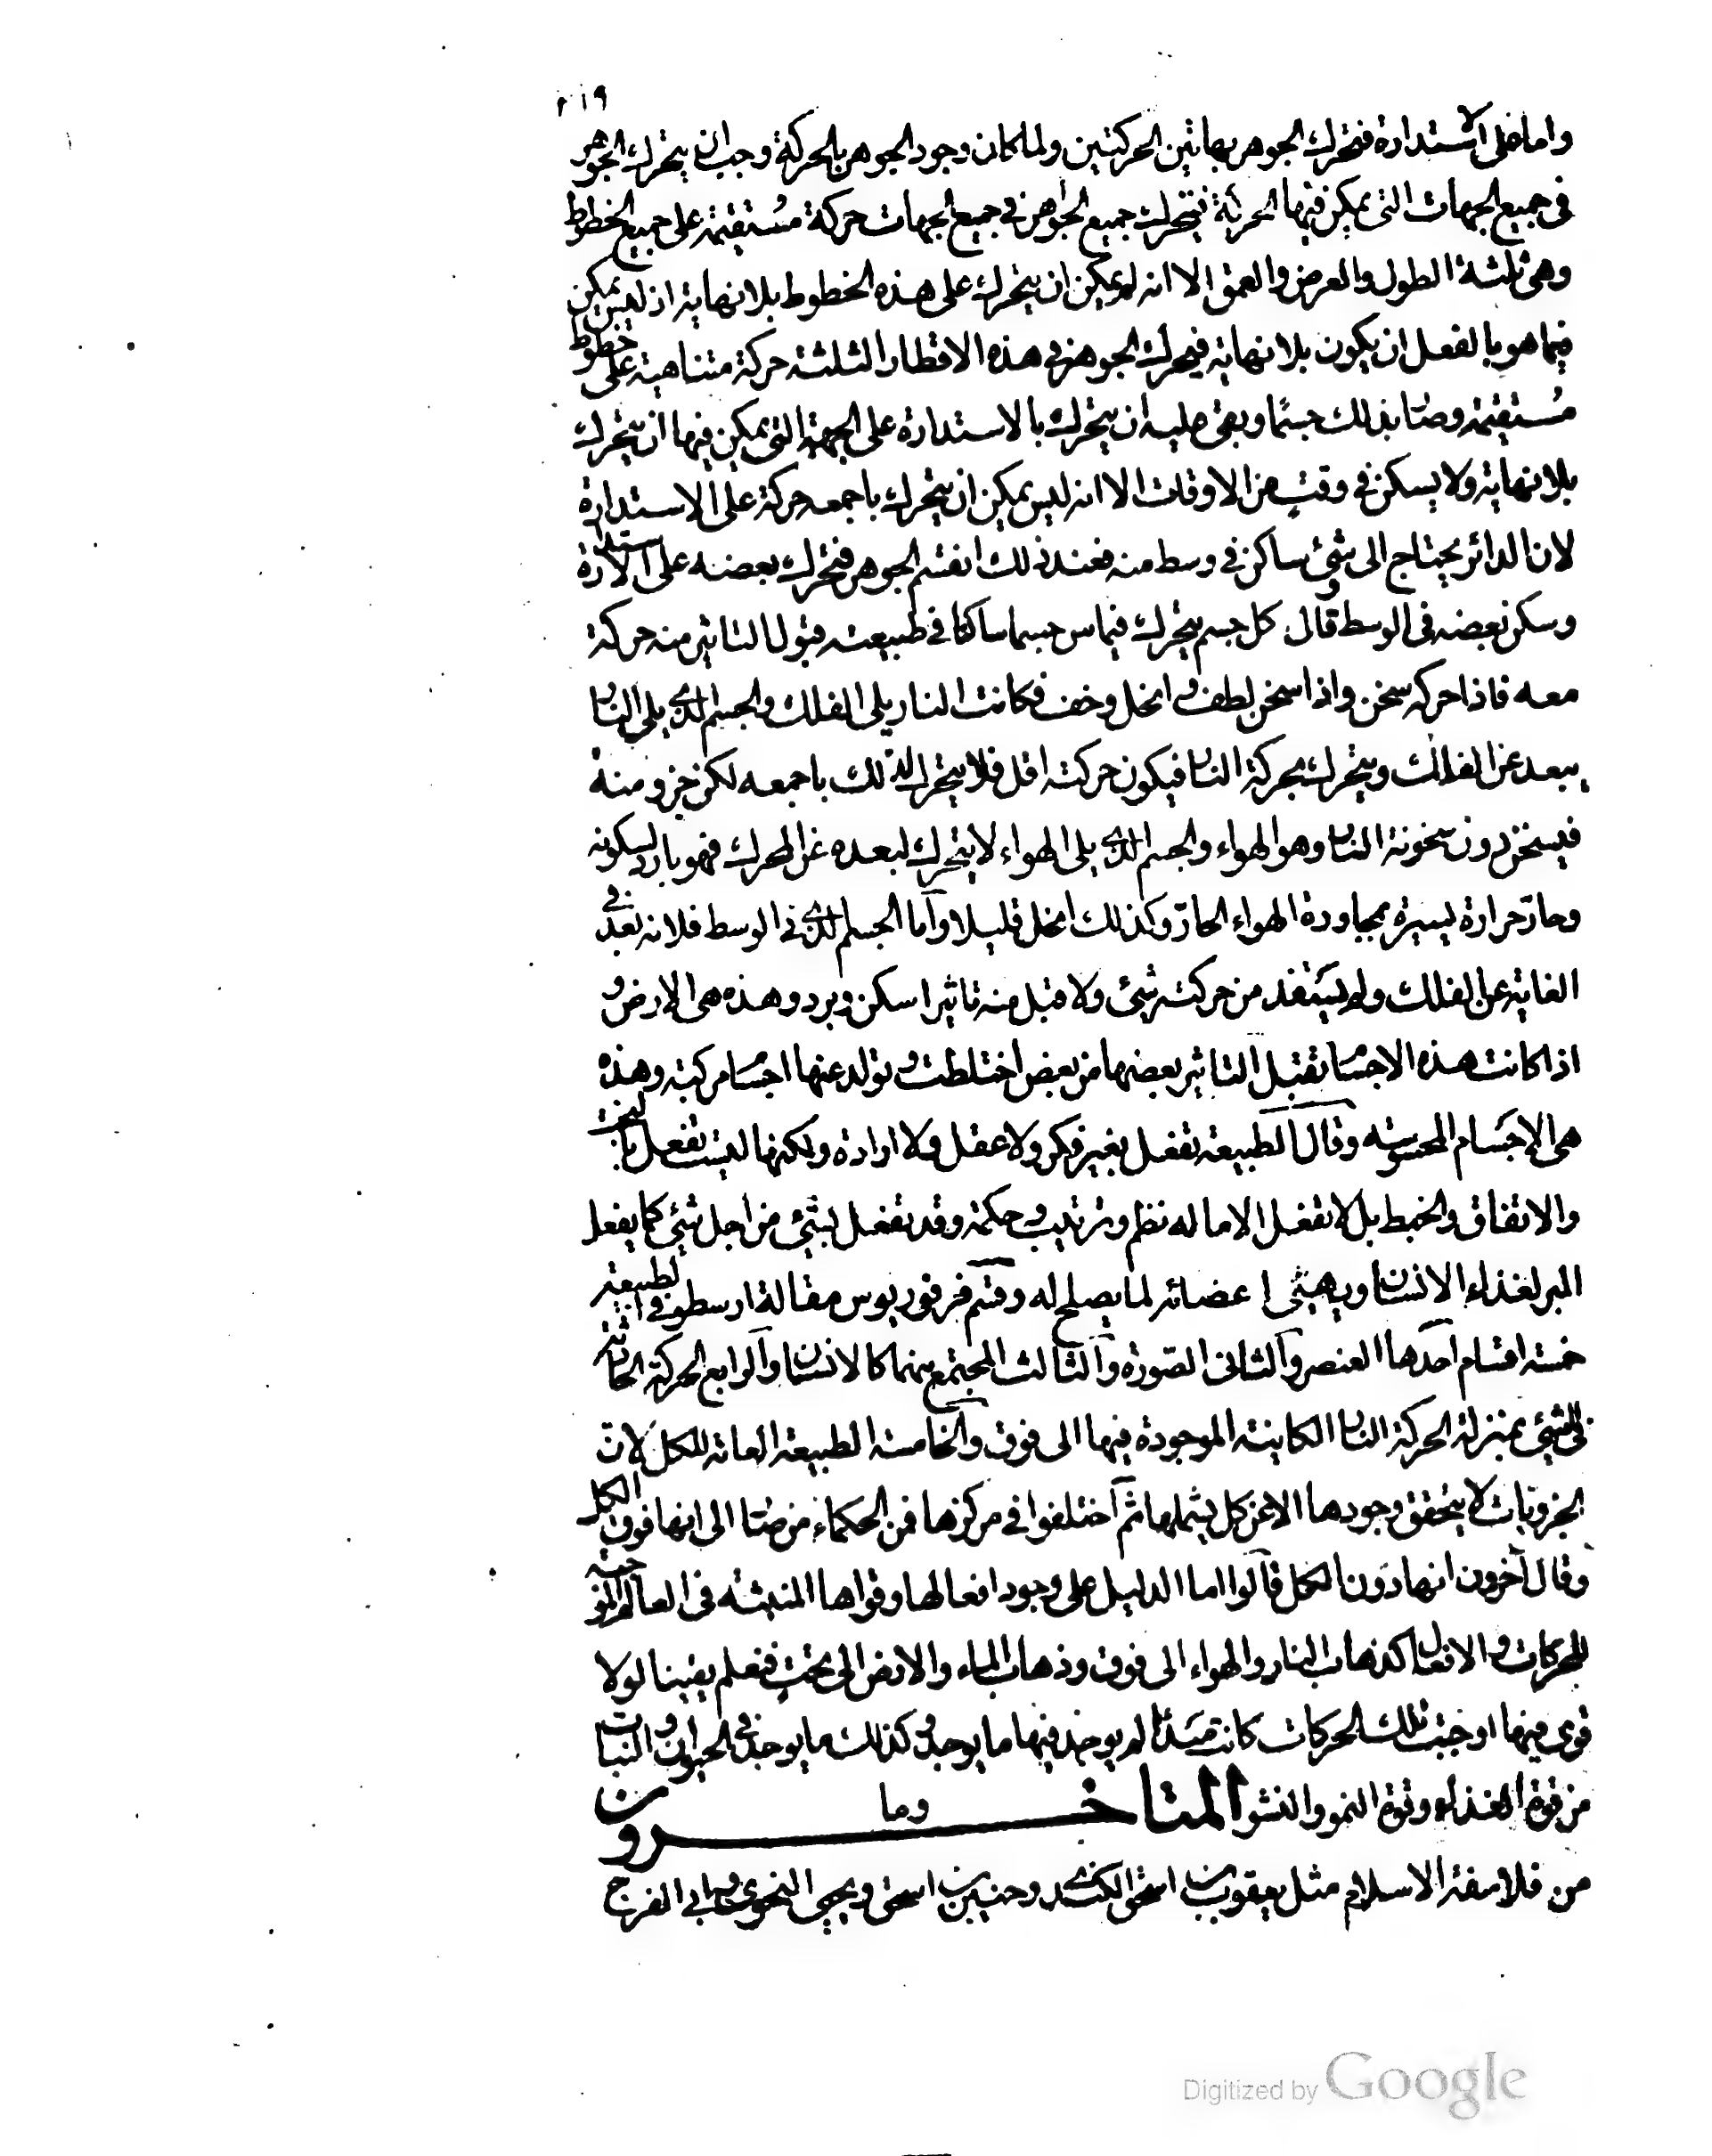 ٢١٩
واما على الاستدارة فتحرك الجوهر بهاتين الحركتين ولما كان وجود الجوهر بالحركة وجب ان يتحرك الجوهر
فى جميع الجهات التى يمكن فيها الحركة فيتحرك جميع الجواهر فى جميع الجهات حركة مستقيمة على جميع الخطوط
وهى ثلثة الطول والعرض والعمق الا انه لم يمكن ان يتحرك على هذه الخطوط بلا نهاية اذ ليس يمكن
فيما هو بالفعل ان يكون بلا نهاية فيحرك الجوهر فى هذه الاقطار الثلثة حركة متناهية على خطوط
مستقيمة وصار بذلك جسمًا وبقى عليه ان يتحرك بالاستدارة على الجهة التى يمكن فيها ان يتحرك
بلا نهاية ولا يسكن فى وقت من الاوقات الا انه ليس يمكن ان يتحرك باجمعه حركة على الاستدارة
لان الدائر يحتاج الى شئ ساكن فى وسط منه فعند ذلك انقسم الجوهر فتحرك بعضه على الاستدارة
وسكن بعضه فى الوسط وقال كل جسم يتحرك فيماس جسما ساكنا فى طبيعته قبول التاثير منه حركة
معه فاذا حركه سخن واذا سخن لطف وانحل وخف فكانت النار يلى الفلك والجسم الذى يلى النار
يبعد عن الفلك ويتحرك بحركة النار فيكون حركته اقل فلا يتحرك لذلك باجمعه لكن جزو منه
فيسخن دون سخونة النار وهو الهواء والجسم الذى يلى الهواء لا يتحرك لبعده عن المحرك فهو بارد لسكونه
وحار حرارة يسيرة بمجاورة الهواء الحار وكذلك انحل قليلا واما الجسم الذى فى الوسط فلانه بعد فى
الغاية عن الفلك ولم يستفد من حركته شئ ولا قبل منه تاثيرا سكن وبرد وهذه هى الارض و
اذا كانت هذه الاجسام تقبل التاثير بعضها من بعض اختلطت وتولد عنها اجسام مركبة وهذه
هى الاجسام المحسوسة وقال الطبيعة تفعل بغير فكر ولا عقل ولا ارادة ولكنها ليست تفعل بالبخت
والاتفاق والخبط بل لا تفعل الا ما له نظم وترتيب وحكمة وقد تفعل لشئ من اجل شئ كما يفعل
البر لغذاء الانسان ويهيئ اعضائه لما يصلح له وقسم فرفوريوس مقالة ارسطو فى الطبيعة
خمسة اقسام احدها العنصر والثانى الصورة والثالث المجتمع منهما كالانسان والرابع الحركة الحادثة
فى الشئ بمنزلة الحركة النار الكاينة الموجودة فيها الى فوق والخامسة الطبيعة العامة للكل لان
الجزويات لا يتحقق وجودها الا عن كل يشملها ثم اختلفوا فى مركزها فمن الحكماء من صار الى انها فوق الكل
وقال آخرون انها دون الكل قالوا اما الدليل على وجود افعالها وقواها المنبثة فى العالم الموجبة
للحركات والافعال كذهاب النار والهواء الى فوق وذهاب الماء والارض الى تحت فنعلم يقينا لولا
قوى فيها اوجبت تلك الحركات كانت مبدأ لم يوجد فيها ما يوجد وكذلك ما يوجد فى الحيوان والنبات
من قوة الغذاء وقوة النمو والنشو وما المتاخرون
من فلاسفة الاسلام مثل يعقوب بن اسحق الكندى وحنين بن اسحق ويحيى النحوى وابى الفرج
Digitized by Google